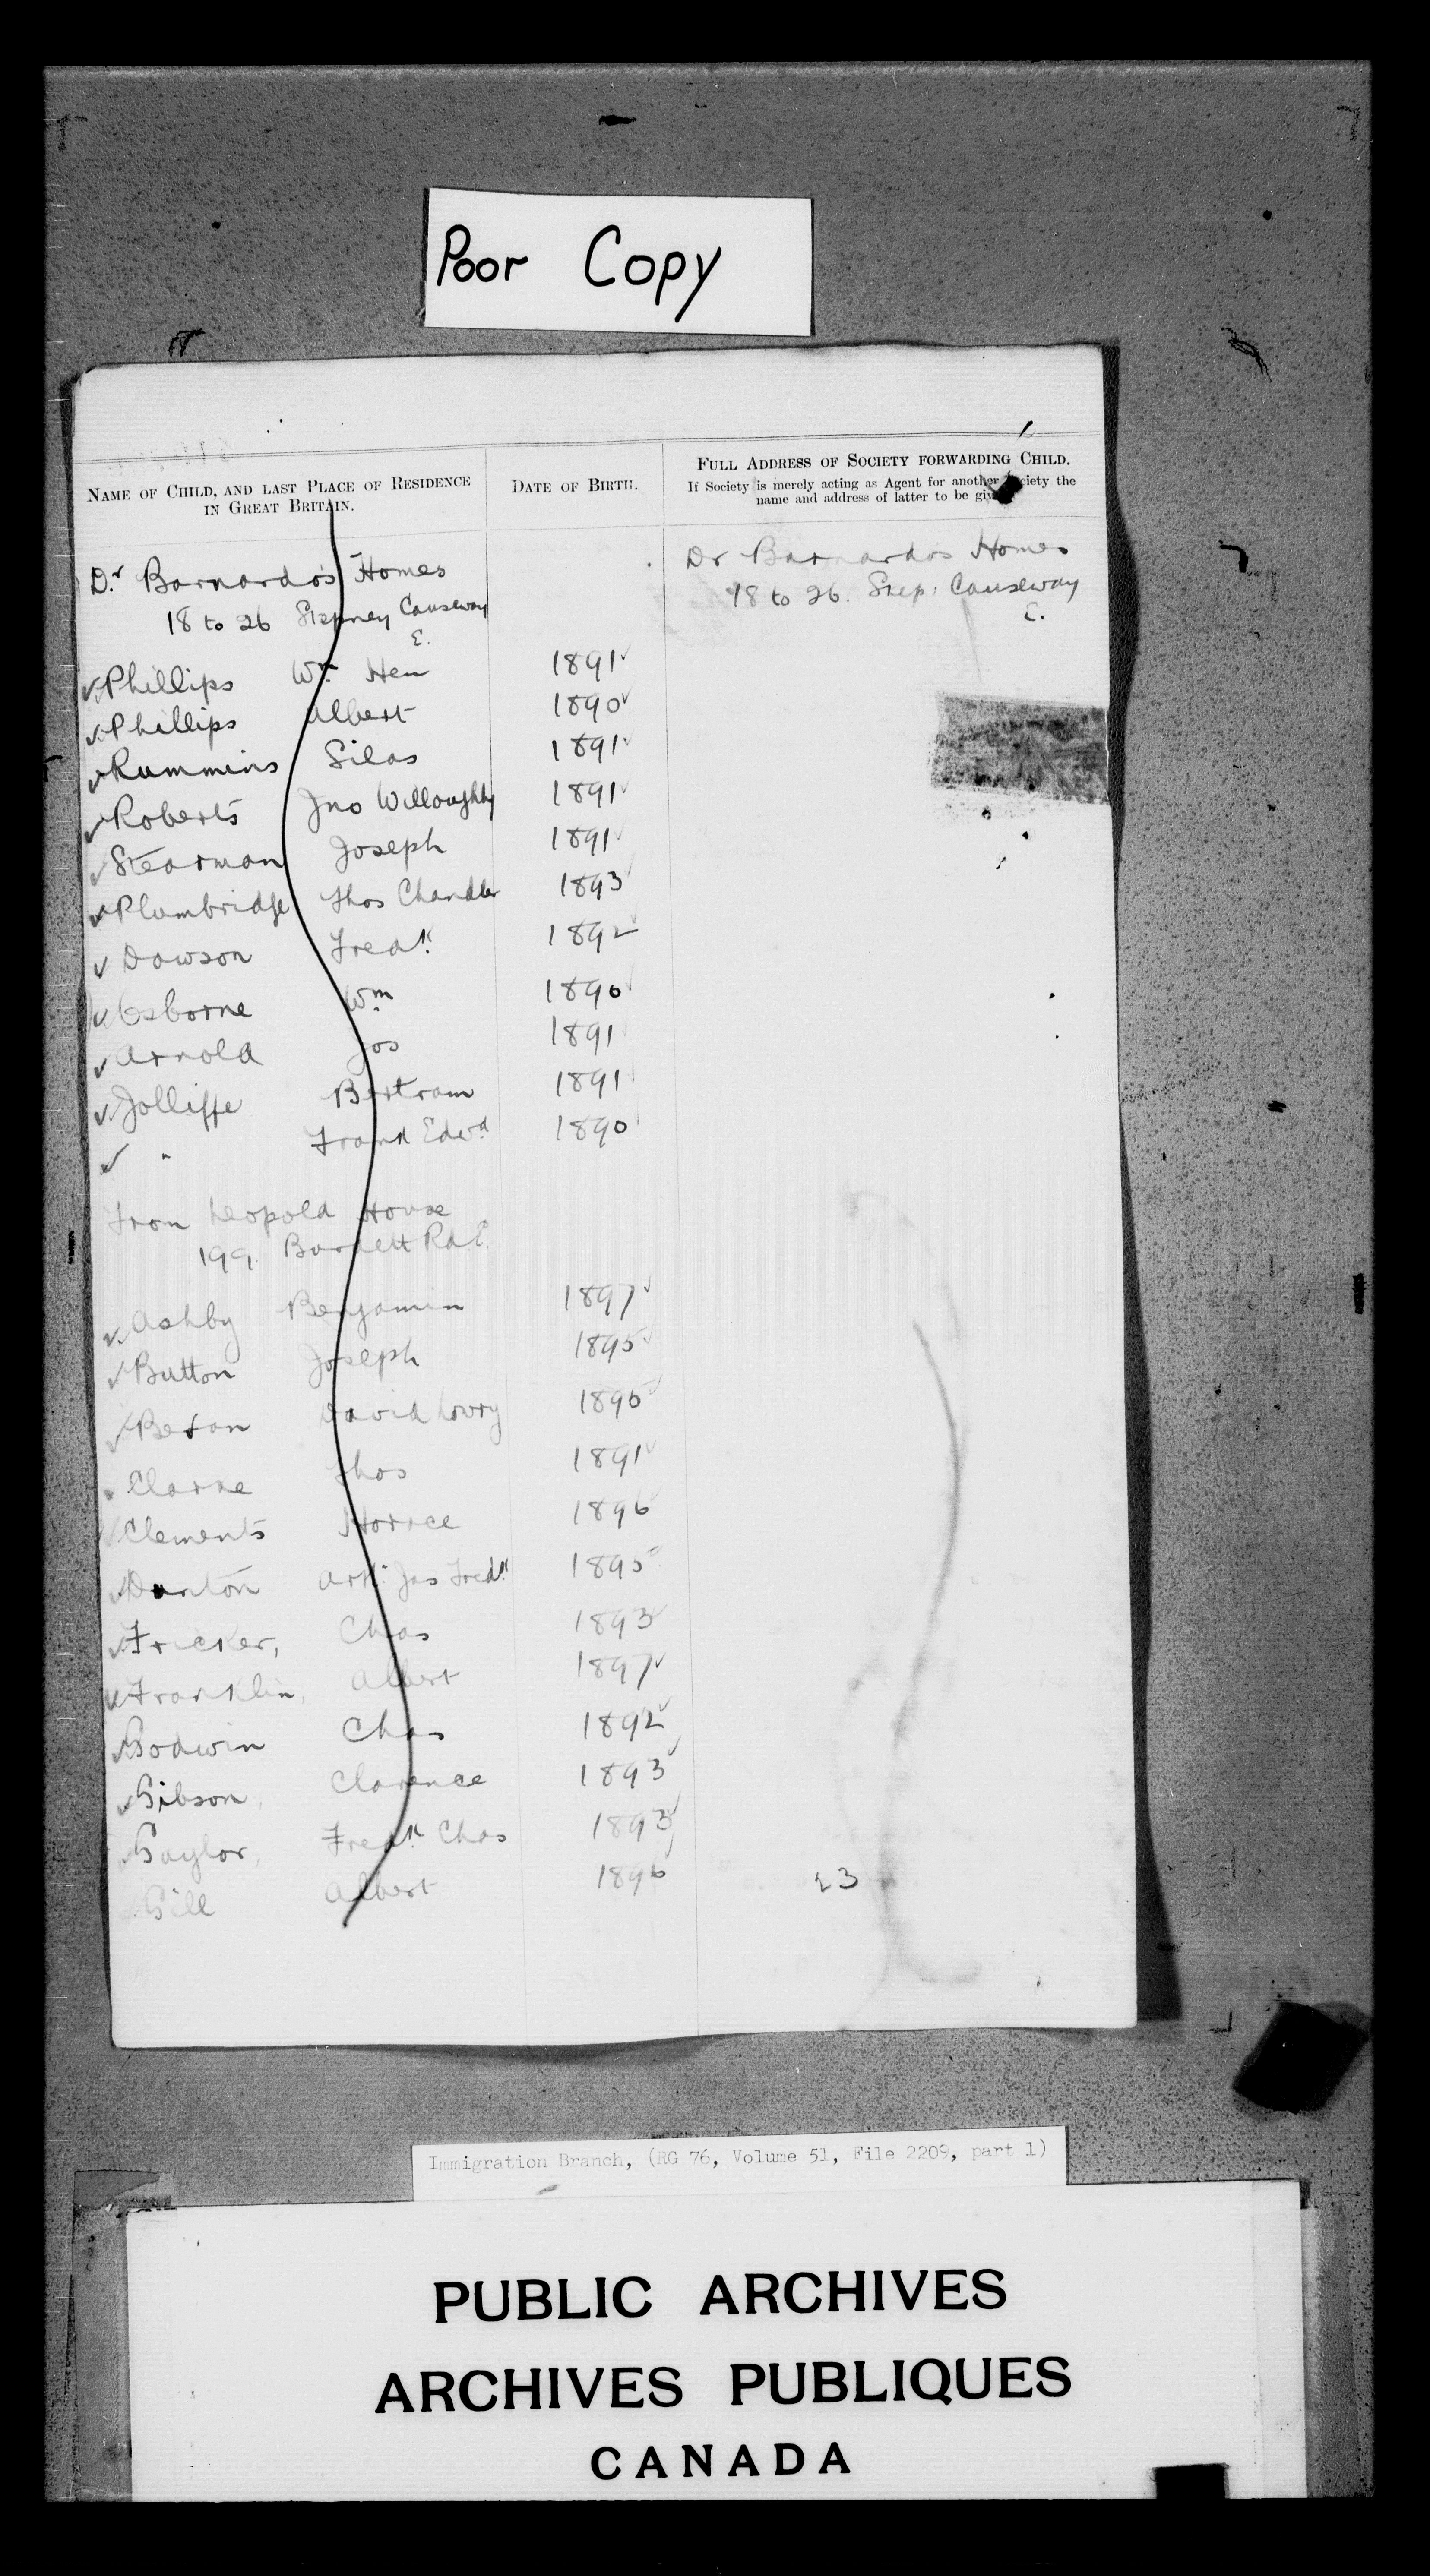 Poor Copy
NAME OF CHILD, AND LAST PLACE OF RESIDENCE
IN GREAT BRITAIN.
DATE OF BIRTH.
FULL ADDRESS OF SOCIETY FORWARDING CHILD.
If Society is merely acting as Agent for another Society the
name and address of latter to be
Dr Barnardo's Homes
18 to 26 Stepney Causeway
E.
Dr Barnardo's Homes
18 to 26. Step: Causeway
E.
✓ Phillips Wm Hen 1891 ✓
✓ Phillips Albert 1890 ✓
✓ Rummins Silas 1891 ✓
✓ Roberts Jno Willoughby 1891 ✓
✓ Stearman Joseph 1891 ✓
✓ Plumbridge Thos Chandler 1893 ✓
✓ Dawson Fredk 1892 ✓
✓ Osborne Wm 1890 ✓
✓ Arnold Jos 1891 ✓
✓ Jolliffe Bertram 1891 ✓
✓ " Frank Edwd 1890 ✓
From Leopold House
199. Burdett Rd E.
✓ Ashby Benjamin 1897 ✓
✓ Button Joseph 1895 ✓
✓ David Lowry ✓
Clarke Thos 1891 ✓
✓ Clements Horace 1896 ✓
✓ Danton Arth: Jas Fredk 1895 ✓
✓ Fricker, Chas 1893 ✓
✓ Franklin, Albert 1897 ✓
✓ Godwin Chas 1892 ✓
✓ Gibson, Clarence 1893 ✓
✓ Gaylor, Fredk Chas 1893 ✓
✓ Gill Albert 1896 ✓ 23
Immigration Branch, (RG 76, Volume 51, File 2209, part 1)
PUBLIC ARCHIVES
ARCHIVES PUBLIQUES
CANADA